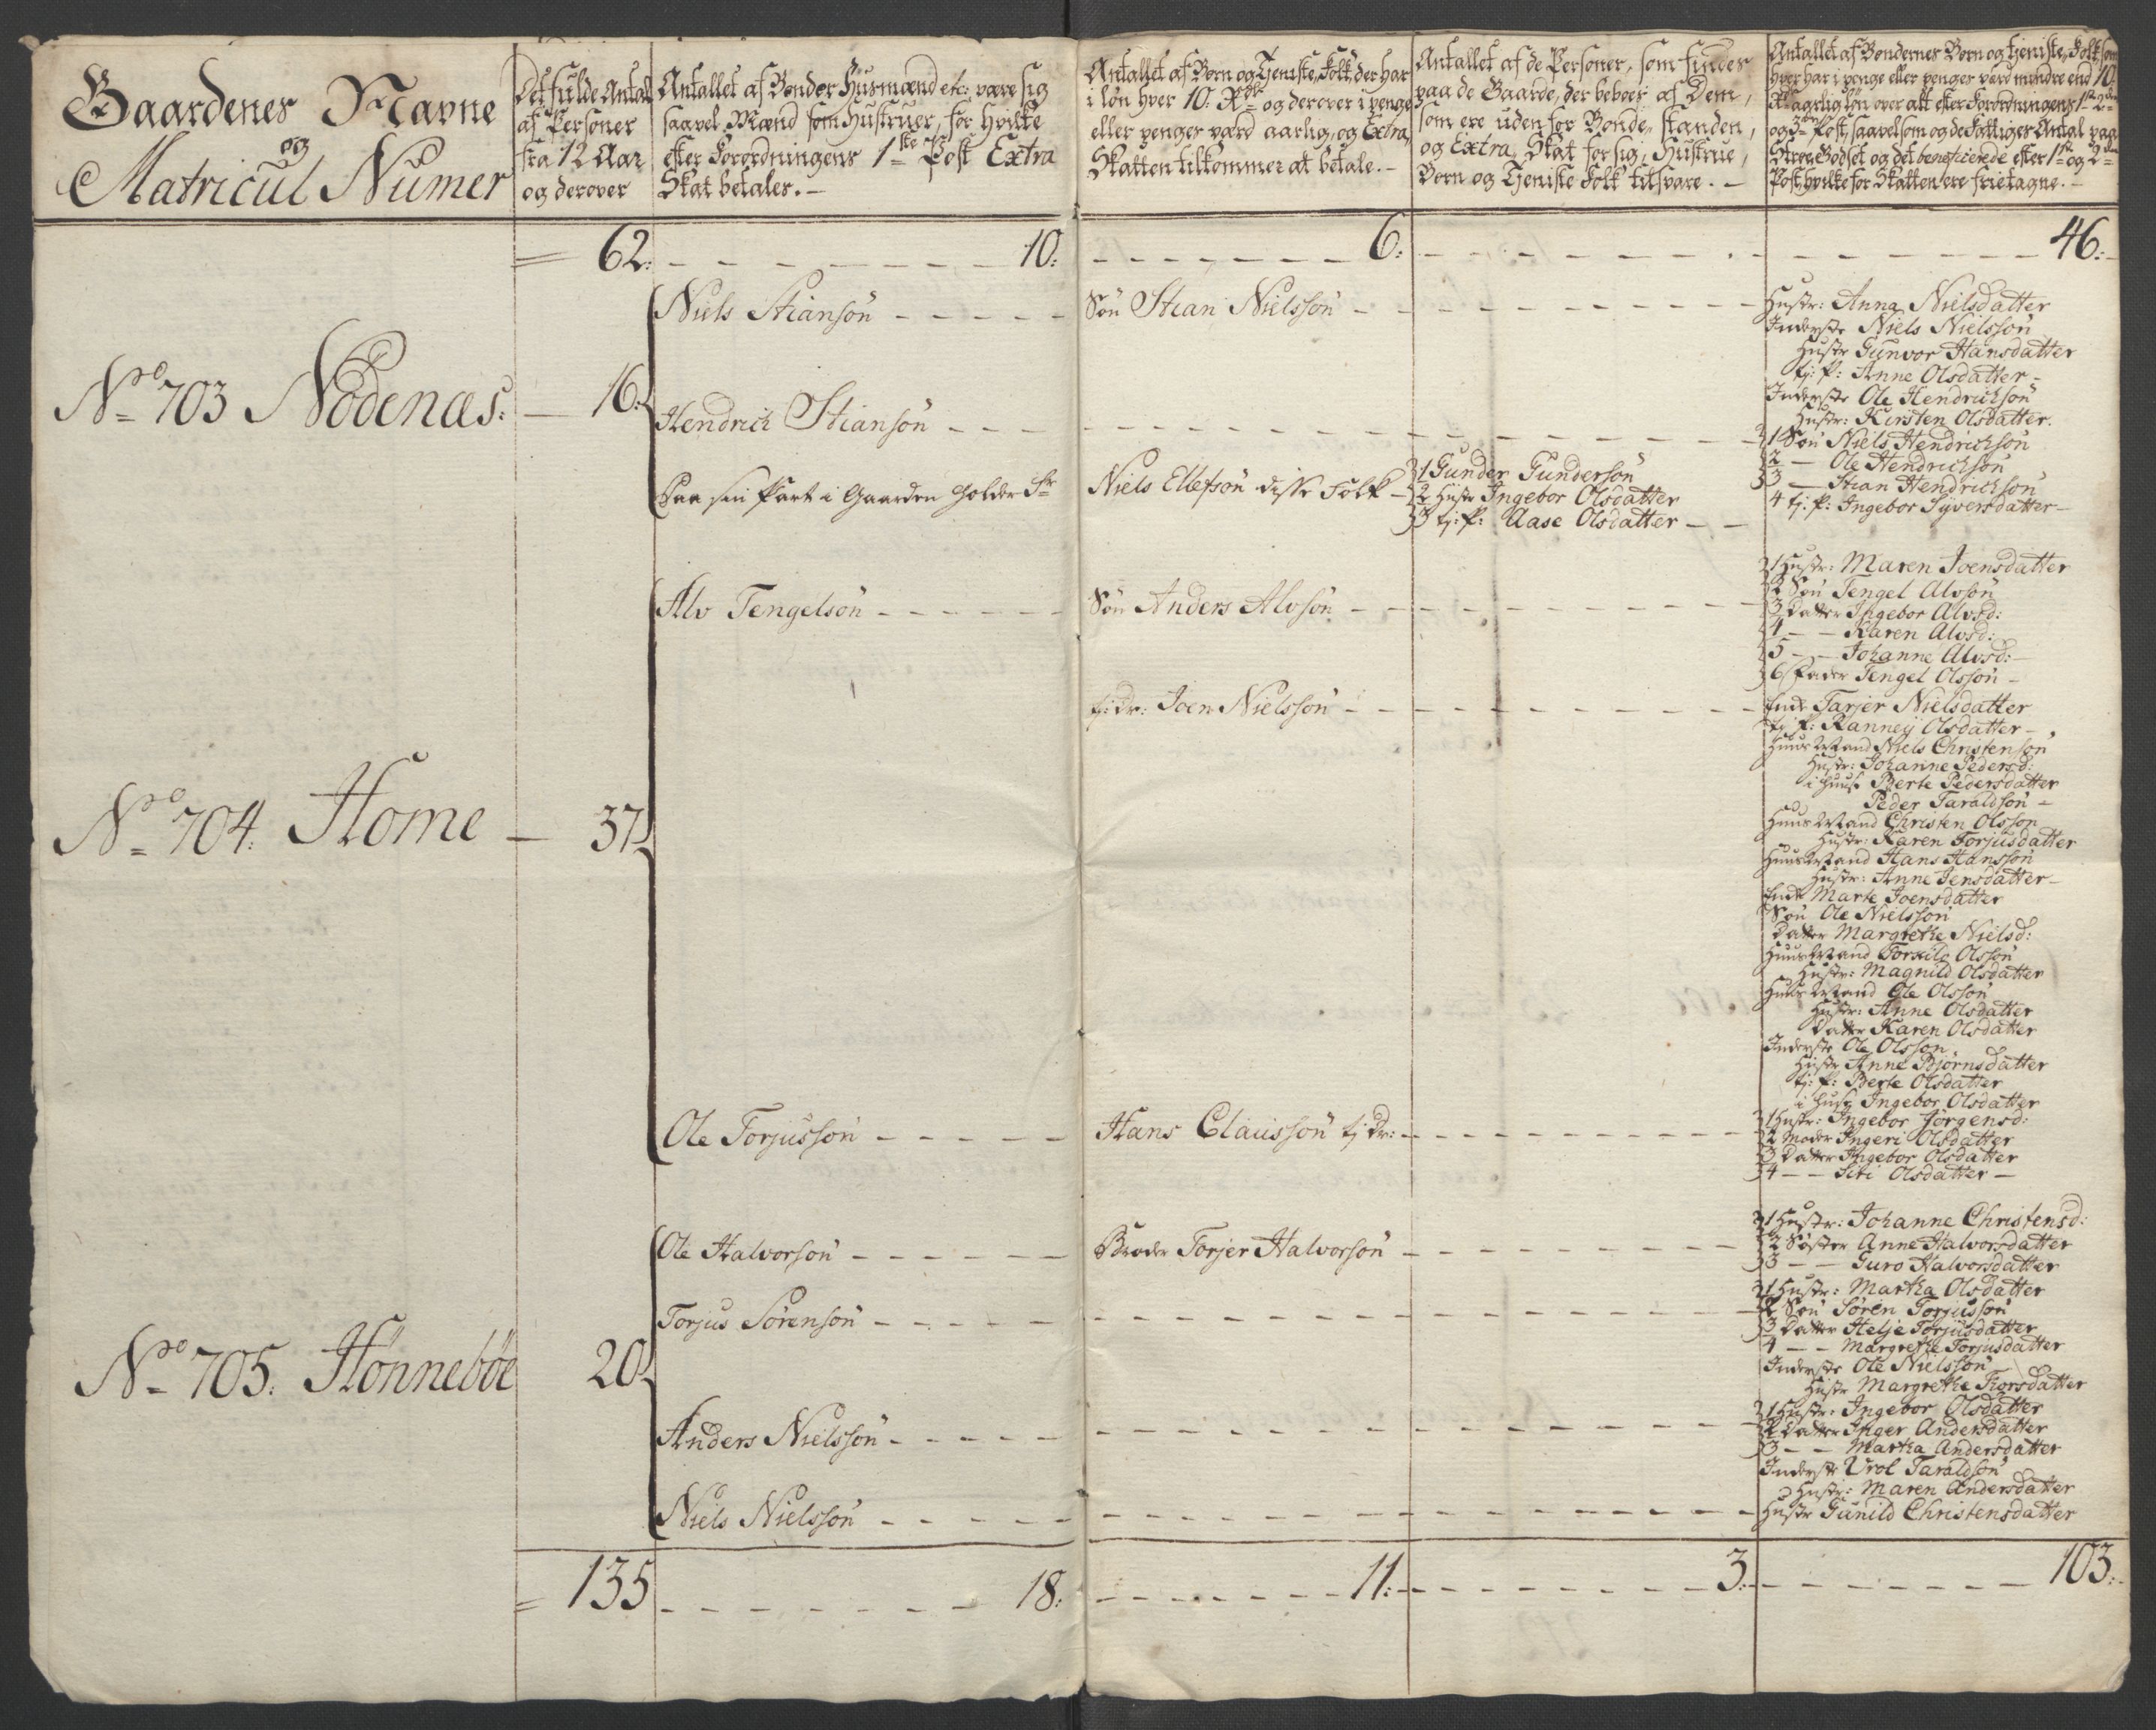 Gaardenes Navne
og
Matricul Numer
Det fulde Antal
af Personer
fra 12 Aar
og derover
Antallet af Bönder Husmænd etc: være sig
saavel Mænd som Hustruer, for hvilke
efter Forordningens 1ste Post Extra
Skat betales. —
Antallet af Börn og Tieniste-Folk, der har
i lön hver 10: Rdlr og derover i penge
eller penges værd aarlig, og Extra
Skatten tilkommer at betale. —
Antallet af de Personer, som findes
paa de Gaarde, der beboes af Dem,
som ere uden for Bonde-standen,
og Extra Skat for sig, Hustrue,
Börn og Tieniste Folk tilsvare. —
Antallet af Böndernes Börn og tieniste-Folk som
hver har i penge eller penges værd mindre end 10
Rd aarlig lön over alt efter Forordningens 1ste 2den
og 3die Post, saavelsom og de Fattiges Antal paa
Strøe-Godset og det beneficerede efter 1ste og 2den
Post, hvilke for Skatten ere frietagne. —
= 62: — 10: — 6: — 46: —
No 703 Nödenæs: — 16:
Niels Stiansön — Sön Stian Nielssön — Hustr: Anna Nielsdatter
Inderste Niels Nielssön
Hustr Gunvor Hansdatter
tj: p: Anne Olsdatter —
Inderste Ole Hendrichsön
Hustr: Kirsten Olsdatter.
Hendrich Stiansön — 1 Sön Niels Hendrichsön
2 — Ole Hendrichsön
3 — Stian Hendrichsön
4 tj: p: Ingebor Syversdatter —
Paa sin Part i Gaarden holder Sr Niels Ellefsön disse Folk — 1 Gunder Gundersön
2 Hustr Ingebor Olsdatter
3 tj: p: Aase Olsdatter —
No 704: Home — 37
Alv Tengelsön — Sön Anders Alvsön — 1 Hustr: Maren Joensdatter
2 Sön Tengel Alvsön
3 Datter Ingebor Alvsd:
4 — Karen Alvsd:
5 — Johanne Alvsd: —
6 Fader Tengel Olssön —
tj: Dr: Joen Nielssön — Enke Tarjer Nielsdatter
tj: p: Ranney Olsdatter —
Huus Mand Niels Christensön
Hustr: Johanne Pedersd:
i Huus Berte Pedersdatter
Peder Taraldsön —
Huus Mand Christen Olsson
Hustr: Karen Torjusdatter
Huus Mand Hans Hanssön
Hustr: Anne Jensdatter —
Enke Marte Joensdatter
Sön Ole Nielssön
Datter Margrethe Nielsd:
Huus Mand Torkild Olssön
Hustr: Magnild Olsdatter
Huus Mand Ole Olssön
Hustr: Anne Olsdatter
Datter Karen Olsdatter
Inderste Ole Olsson
Hustr Anne Björnsdatter
tj: p: Berte Olsdatter
i Huus Ingebor Olsdatter
Ole Torjussön — Hans Claussön tj Dr: — 1 Hustr: Ingebor Jörgensd:
2 Moder Ingeri Olsdatter
3 Datter Ingebor Olsdatter
4 — Siri Olsdatter —
No 705: Hönneböe 20
Ole Halvorsön — Broder Torjer Halvorsön — 1 Hustr: Johanne Christensd:
2 Söster Anne Halvorsdatter
3 — Guro Halvorsdatter
Torjus Sörensön — 1 Hustr: Martha Olsdatter
2 Sön Sören Torjussön
3 Datter Helje Torjusdatter
4 — Margrethe Torjusdatter
Inderste Ole Nielssön
Hustr Margrethe Thorsdatter
Anders Nielssön — 1 Hustr: Ingebor Olsdatter
2 Datter Inger Andersdatter
3 — Martha Andersdatter
Inderste Urol Taraldsön
Hustr: Maren Andersdatter
Niels Nielssön — Hustr Gunild Christensdatter
= 135 — 18: — 11: — 3: — 103: —